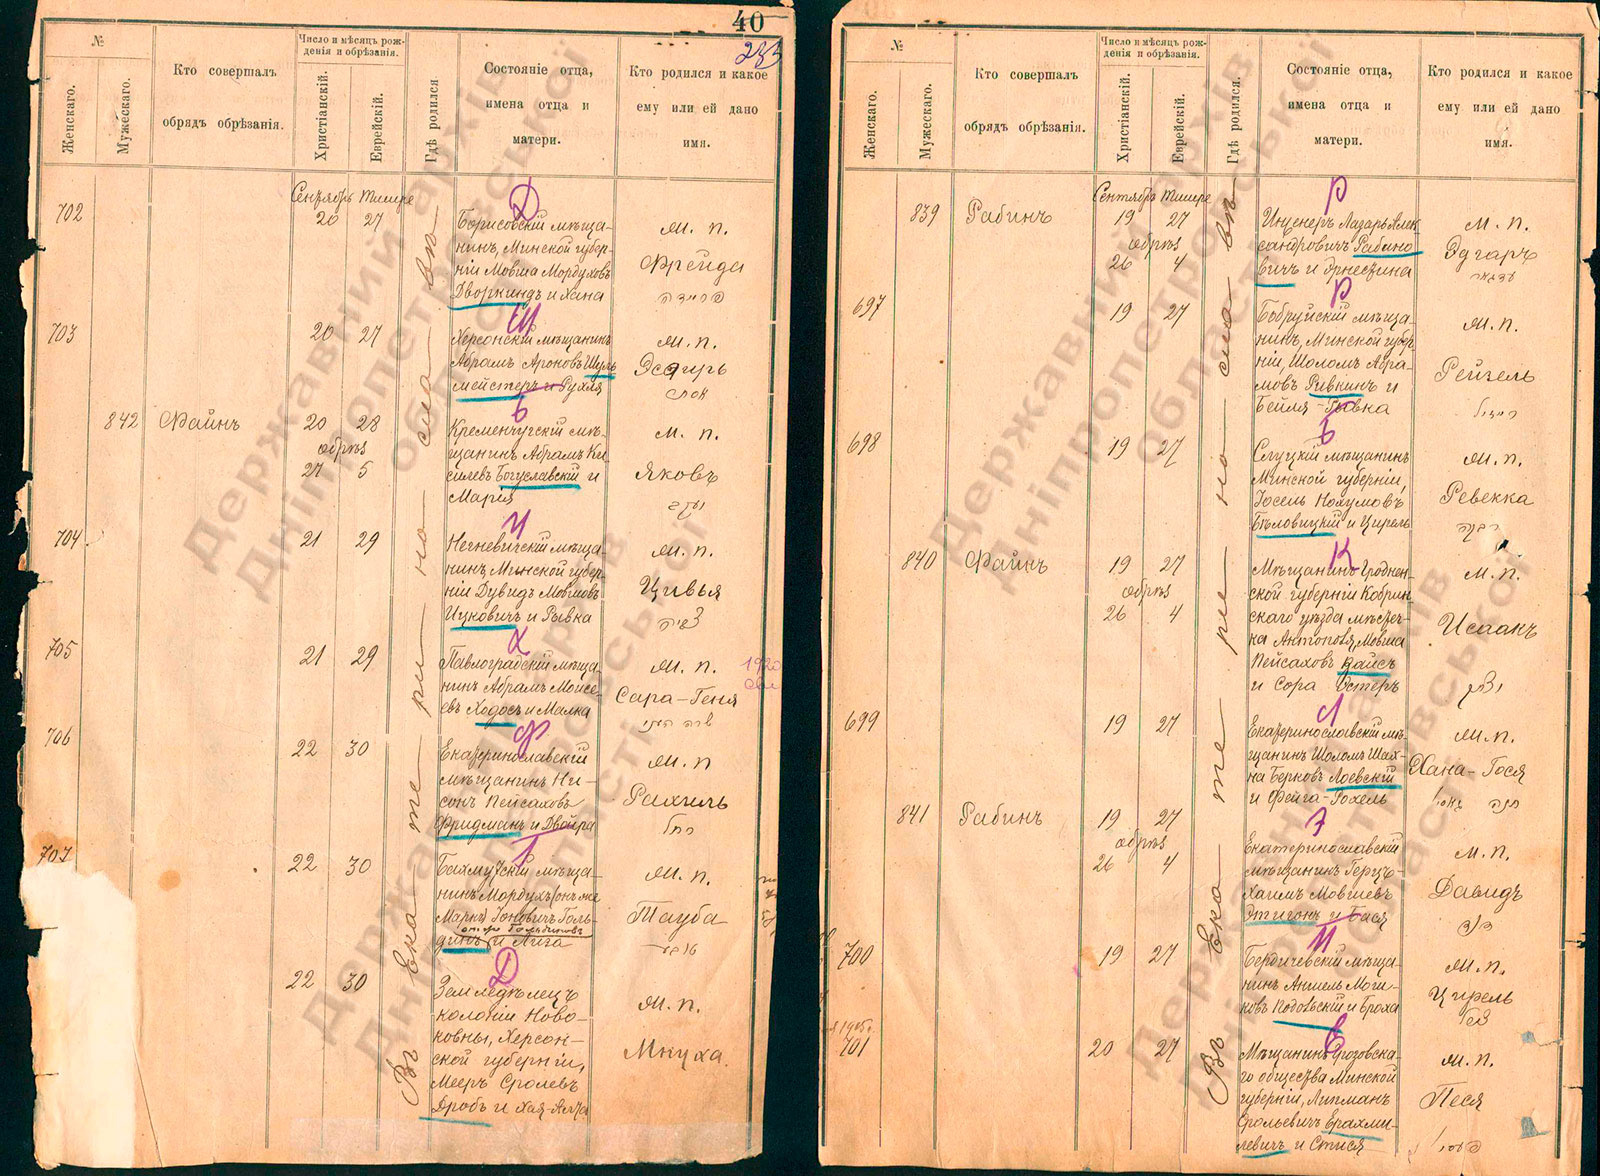 40
283
№
Женскаго.
Мужескаго.
Кто совершалъ
обрядъ обрѣзанія.
Число и мѣсяцъ рож-
денія и обрѣзанія.
Христіанскій.
Еврейскій.
Гдѣ родился
Состояніе отца,
имена отца и
матери.
Кто родился и какое
ему или ей дано
имя.
Въ Екатеринославѣ
Сентябрь Тишре
702
20 27
Д
Борисовскій мѣща-
нинъ, Минской губер-
ніи Мовша Мордуховъ
Дворкиндъ и Хана
м. п.
Фрейда
פריידה
703
20 27
Ш
Херсонскій мѣщанинъ
Абрамъ Ароновъ Шуль
мейстеръ и Рухля
м. п.
Эсѳирь
אסתר
842 Файнъ
20 28
обрѣз
27 5
Б
Кременчугскій мѣ-
щанинъ Абрамъ Ки-
силевъ Богуславскій и
Марія
м. п.
Яковъ
יעקב
704
21 29
И
Негневичскій мѣща-
нинъ, Минской губер-
ніи Дувидъ Мовшовъ
Ицковичъ и Рывка
м. п.
Цивья
צביה
705
21 29
Х
Павлоградскій мѣща-
нинъ Абрамъ Моисе-
евъ Ходосъ и Малка
м. п.
Сара-Геня
שרה העני
1920
706
22 30
Ф
Екатеринославскій
мѣщанинъ Ни-
сонъ Пейсаховъ
Фридманъ и Двойра
м. п
Рахиль
רחל
707
22 30
Бахмутскій мѣща-
нинъ Мордухъ (онъ же
Маркъ) Іоновичъ Голь-
динъ и Лиза
м. п.
Тауба
22 30
Д
Земледѣлецъ
колоніи Ново-
ковны, Херсон-
ской губерніи,
Мееръ Сролевъ
Дробъ и Хая-Алта
м. п.
Мнуха
№
Женскаго.
Мужескаго.
Кто совершалъ
обрядъ обрѣзанія.
Число и мѣсяцъ рож-
денія и обрѣзанія.
Христіанскій.
Еврейскій.
Гдѣ родился.
Состояніе отца,
имена отца и
матери.
Кто родился и какое
ему или ей дано
имя.
Въ Екатеринославѣ
Сентябрь Тишре
839 Рабинъ
19 27
обрѣз
26 4
Р
Инженеръ Лазарь Алек
сандровичъ Рабино
вичъ и Эрнестина
м. п.
Эдгаръ
697
19 27
Р
Бобруйскій мѣща-
нинъ, Минской губер
ніи, Шоломъ Абра-
мовъ Ривкинъ и
Бейля-Рывка
м. п.
Рейзель
רייזל
698
19 27
Б
Слуцкій мѣщанинъ
Минской губерніи,
Іосель Нохумовъ
Бѣловицкій и Цирель
м. п.
Ревекка
רבקה
840 Файнъ
19 27
обрѣз
26 4
К
Мѣщанинъ Гроднен-
ской губерніи Кобрин
скаго уѣзда мѣстеч-
ка Антополя, Мовша
Пейсаховъ Кайсъ
и Сора Эстеръ
м. п.
Исаакъ
יצחק
699
19 27
Л
Екатеринославскій мѣ-
щанинъ Шоломъ Шах-
на Берковъ Лоевскій
и Фейга-Рохель
м. п.
Хана-Гося
841 Рабинъ
19 27
обрѣз
26 4
Э
Екатеринославскій
мѣщанинъ Герцъ-
Хаимъ Мовшевъ
Этигонъ и Бася
м. п.
Давидъ
דוד
700
19 27
П
Бердичевскій мѣща-
нинъ Аншель Моши-
ковъ Подольскій и Броха
м. п.
Цирель
צירל
701
20 27
Е
Мѣщанинъ Грозовска-
го общества Минской
губерніи, Липманъ
Срольевичъ Ерахми-
левичъ и Стися
м. п.
Песя
Державний архів
Дніпропетровської
області
Державний архів
Дніпропетровської
області
Державний архів
Дніпропетровської
області
Державний архів
Дніпропетровської
області